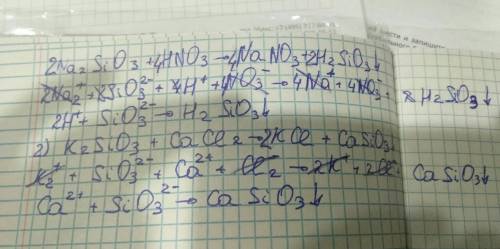 2Na₂SiO₃+4HNO₃→4NaNO₃+2H₂SiO₃↓
2Na₂⁺+2SiO₃²⁻+4H⁺+4NO₃⁻→4Na⁺+4NO₃⁻+2H₂SiO₃↓
2H⁺+SiO₃²⁻→H₂SiO₃↓
2) K₂SiO₃+CaCl₂→2KCl+CaSiO₃↓
K₂⁺+SiO₃²⁻+Ca²⁺+Cl₂⁻→2K⁺+2Cl⁻ CaSiO₃↓
Ca²⁺+SiO₃²⁻→CaSiO₃↓